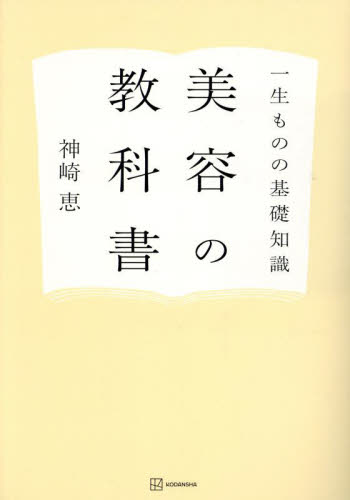 一生ものの基礎知識
美容の
教科書
神崎恵
KODANSHA